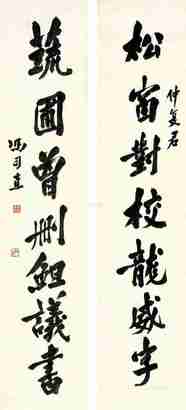 仲夐君
松窗對校龍威字
蔬圃曾刪鉏議書
馮司直